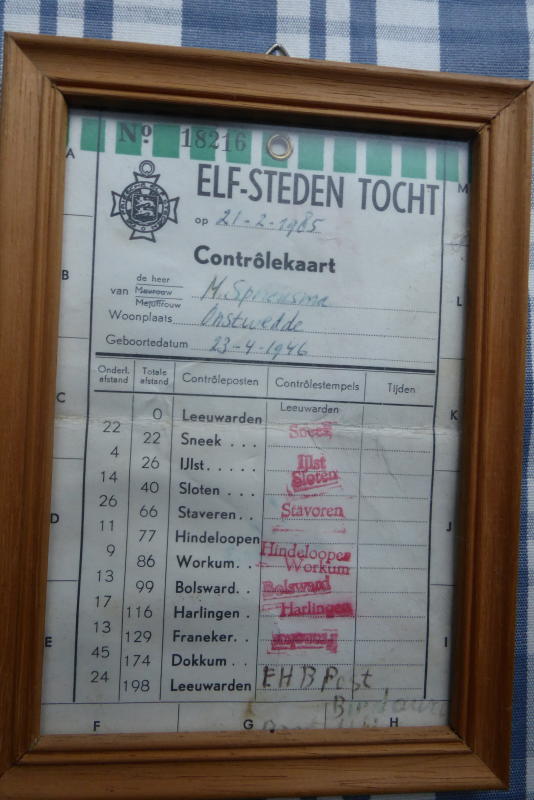 Nº 18216
A
M
ELF-STEDEN TOCHT
op 21-2-1985
Contrôlekaart
B
L
de heer
van Mevrouw M.
Mejuffrouw
Woonplaats Onstwedde
Geboortedatum 23-4-1946
Onderl. afstand Totale afstand Contrôleposten Contrôlestempels Tijden
C
K
0 Leeuwarden Leeuwarden
22
22 Sneek . . . Sneek
4
26 IJlst. . . . . IJlst
14
40 Sloten . . . Sloten
26
66 Staveren . . Stavoren
11
D
J
77 Hindeloopen Hindeloopen
9
86 Workum. . Workum
13
99 Bolsward. . Bolsward
17
116 Harlingen . Harlingen
13
129 Franeker. .
E
I
45
174 Dokkum . .
24
198 Leeuwarden EHB Post
F
G
H